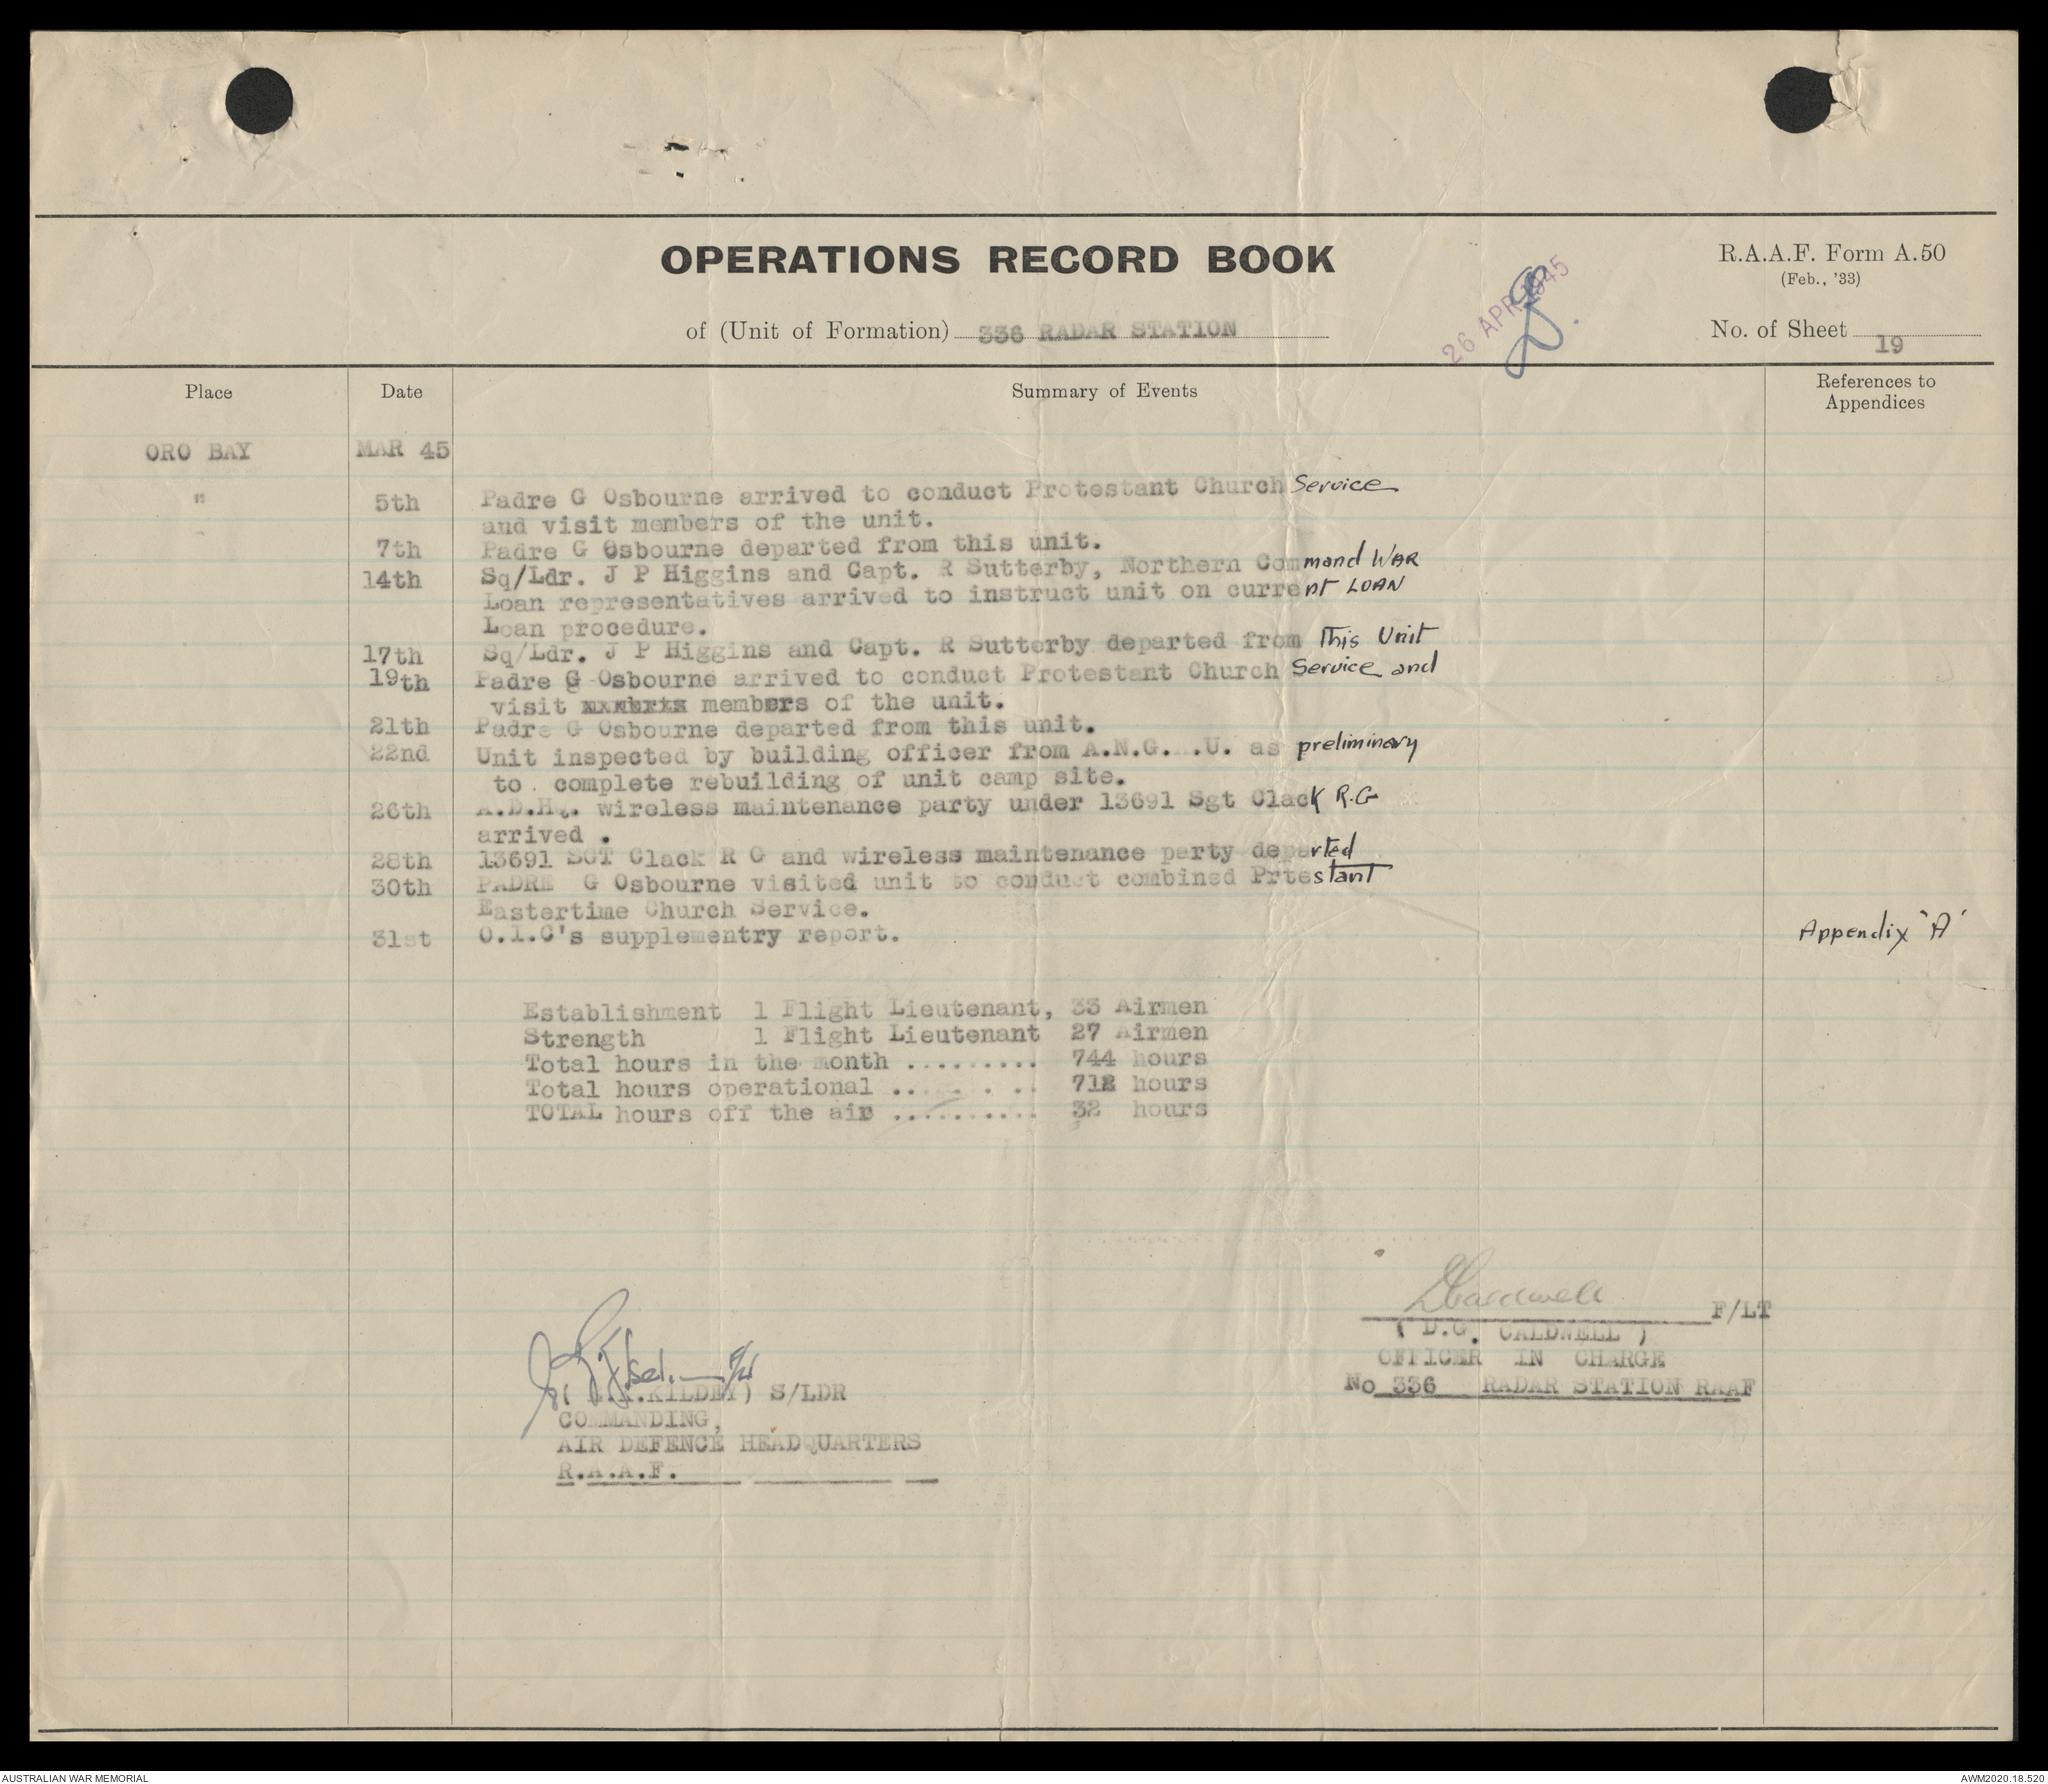 OPERATIONS RECORD BOOK
R.A.A.F. Form A.50
(Feb., '33)
26 APR 1945
of (Unit of Formation) 336 RADAR STATION
No. of Sheet 19
Place Date Summary of Events References to
Appendices
ORO BAY MAR 45
" 5th Padre G Osbourne arrived to conduct Protestant Church Service
and visit members of the unit.
7th Padre G Osbourne departed from this unit.
14th Sq/Ldr. J P Higgins and Capt. R Sutterby, Northern Command WAR
Loan representatives arrived to instruct unit on current LOAN
Loan procedure.
17th Sq/Ldr. J P Higgins and Capt. R Sutterby departed from This Unit
19th Padre G Osbourne arrived to conduct Protestant Church Service and
visit members of the unit.
21th Padre G Osbourne departed from this unit.
22nd Unit inspected by building officer from A.N.G. .U. as preliminary
to . complete rebuilding of unit camp site.
26th A.D.Hq. wireless maintenance party under 13691 Sgt Clack R.G
arrived .
28th 13691 SGT Clack R G and wireless maintenance party departed
30th PADRE G Osbourne visited unit to conduct combined Prtestant
Eastertime Church Service.
31st O.I.C's supplementry report. Appendix 'A'
Establishment 1 Flight Lieutenant, 33 Airmen
Strength 1 Flight Lieutenant 27 Airmen
Total hours in the month ......... 744 hours
Total hours operational .......... 712 hours
TOTAL hours off the air .......... 32 hours
DCaldwell F/LT
( D.G. CALDWELL )
OFFICER IN CHARGE
No 336 RADAR STATION RAAF
KILDEY) S/LDR
COMMANDING,
AIR DEFENCE HEADQUARTERS
R.A.A.F.
AUSTRALIAN WAR MEMORIAL
AWM2020.18.520